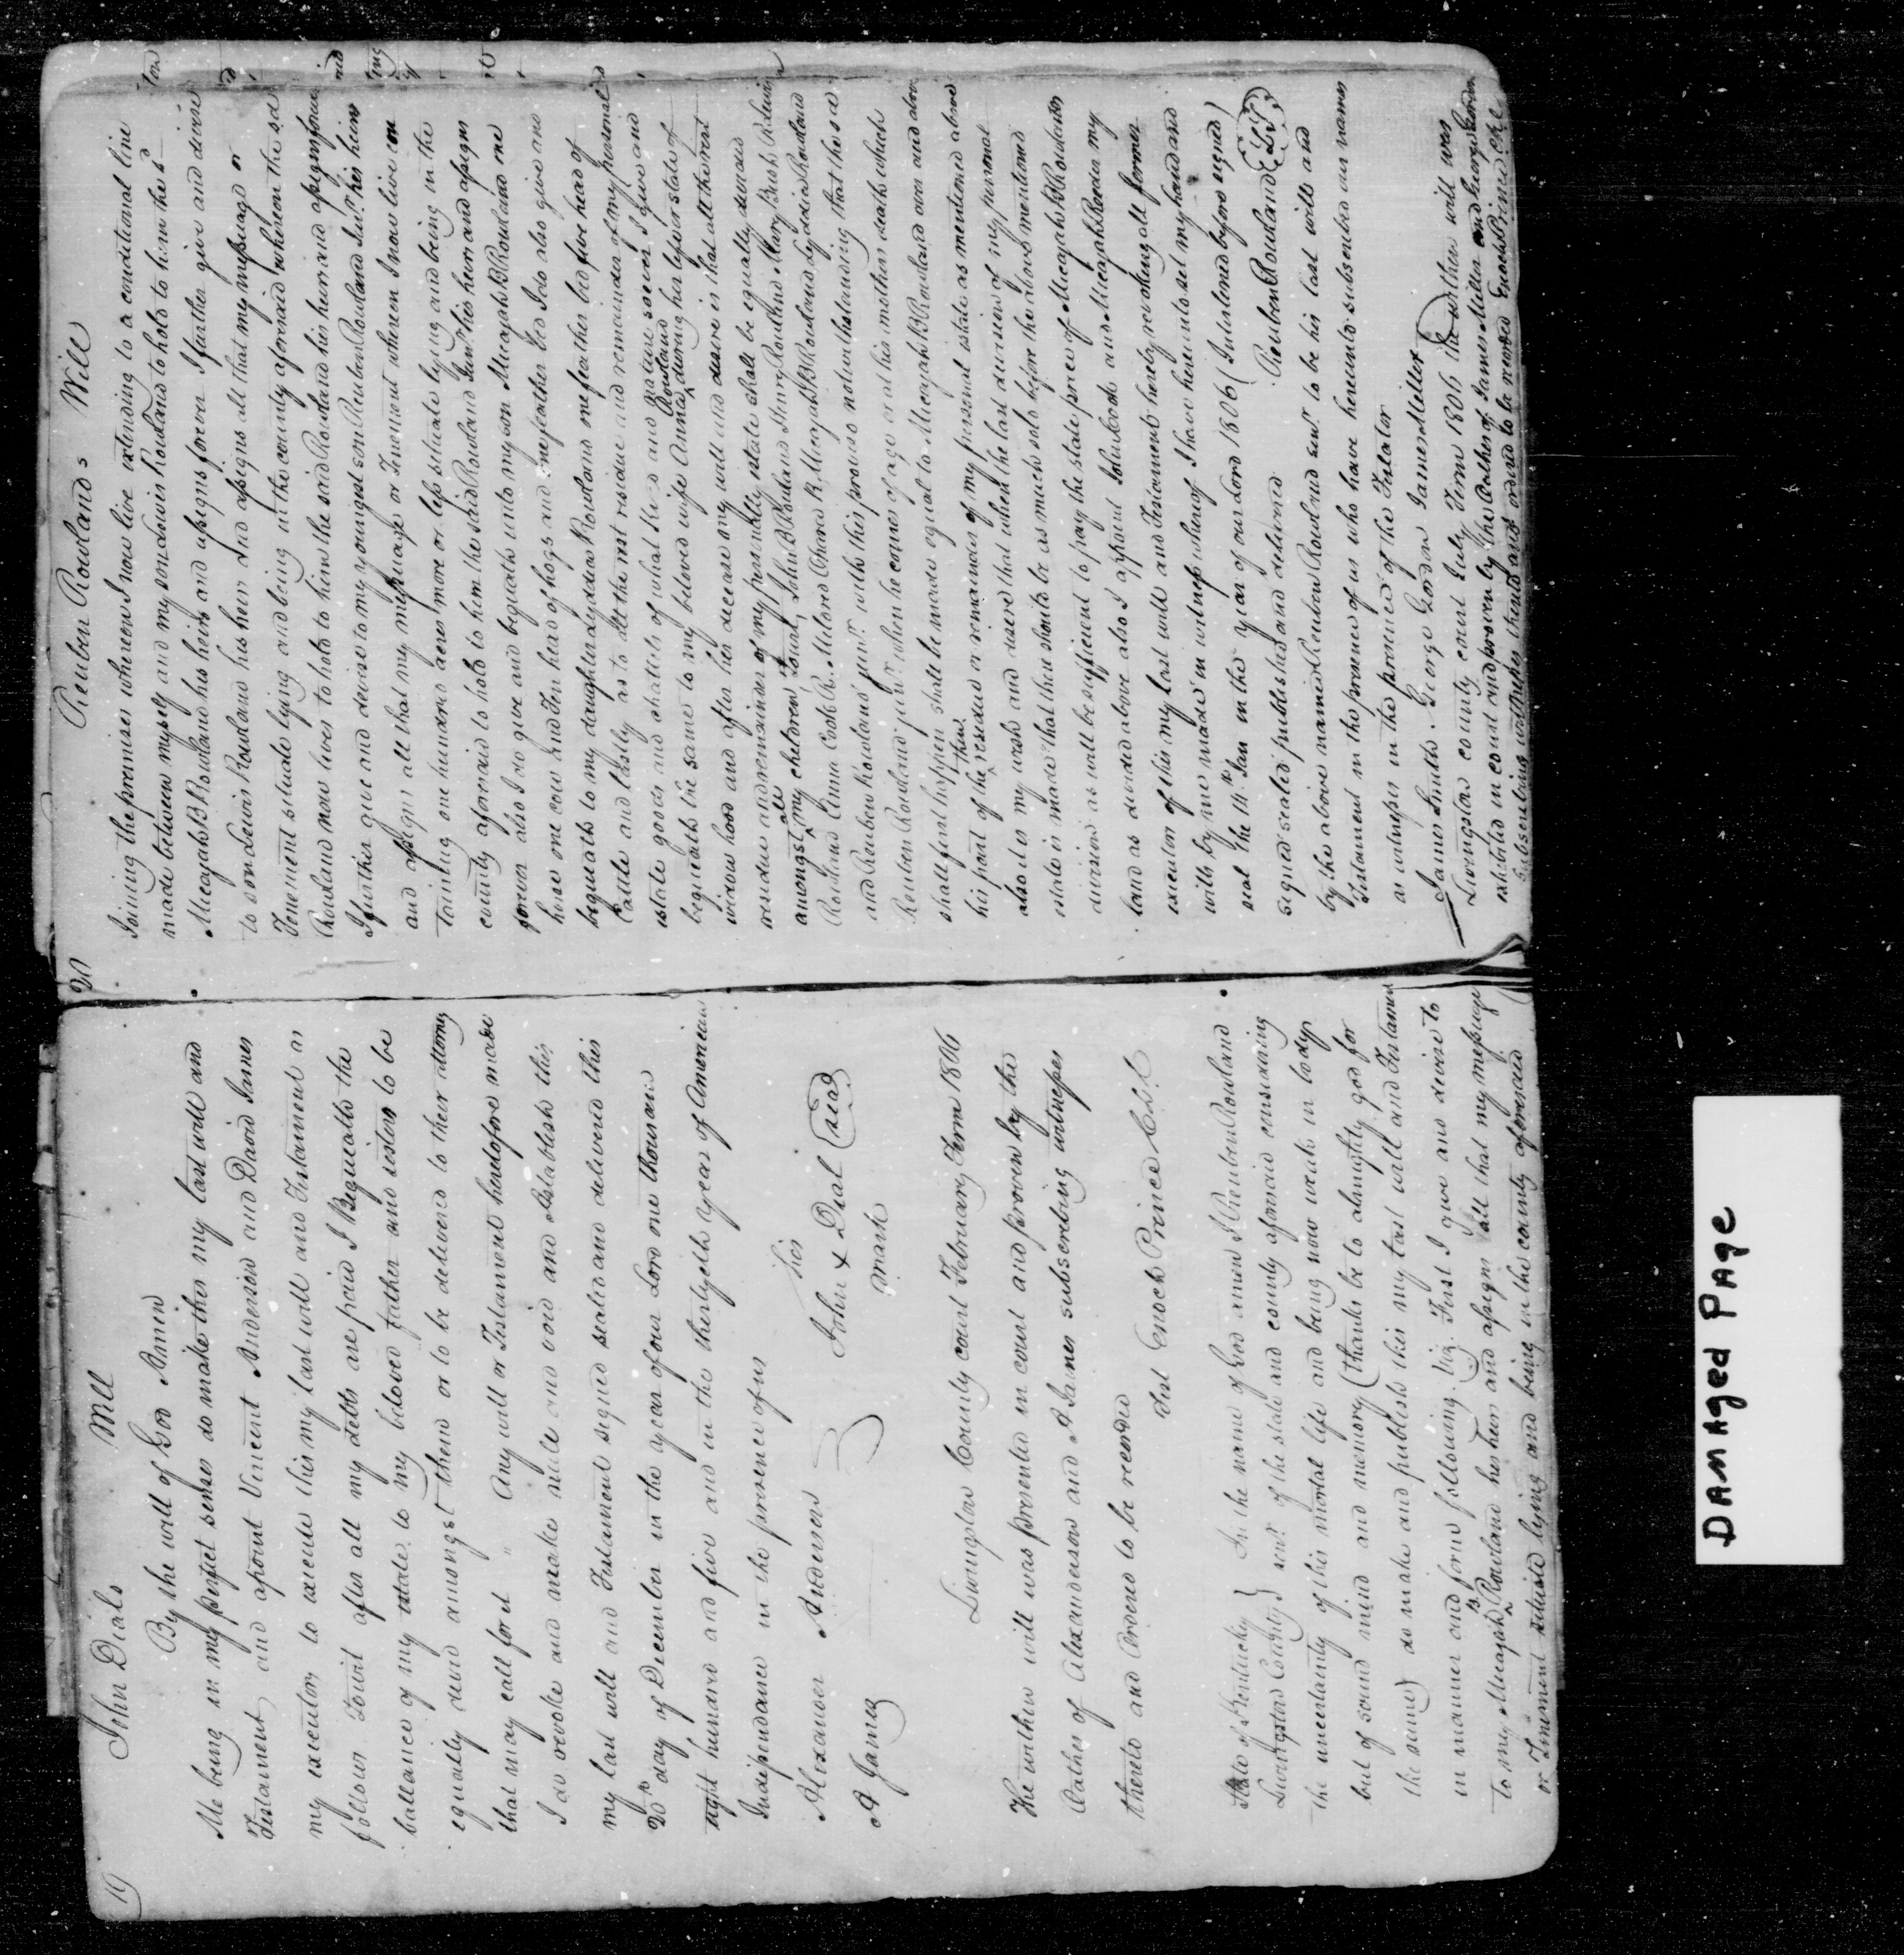 19
John Dials Will
By the will of God Amen
Me being in my perfect senses do make this my last will and
Testament and apoint Vincent Anderson and David James
my executors to execute this my last will and Testament as
follows Towit after all my debts are paid I Bequeath the
ballance of my estate to my beloved father and sisters to be
equally devid amongst them or to be delivered to their attorney
that may call for it " Any will or Testament heretofore made
I do revoke and make null and void and Establish this
my last will and Testament signed seald and delivered this
20th day of December in the year of our Lord one thousand
eight hundred and five and in the thirtyeth year of American
Independance in the presence of us
Alexander Anderson his
John x Dial seal
A James mark
Livingston County court February Term 1806
The within will was presented in court and proven by the
Oathes of Alexanderson and A James subscribing witnesses
thereto and Ordered to be recorded
Test Enoch Prince C L C
State of Kentucky } In the name of God amen I Reuben Rowland
Livingston County } senr. of the state and county aforesaid considering
the uncertainty of this mortal life and being now weak in body
but of sound mind and memory (thanks be to almighty god for
the same) do make and publish this my last will and Testament
in manner and form following. viz. First I give and devise to
to my Micajah B Rowland his heirs and assigns all that my messuage
or Tenement situate lying and being in the county aforesaid
20
Reuben Rowlands Will
Joining the premises whereon I now live extending to a conditional line
made between myself and my son Lewis Rowland to hold to him the sd
Micajah B Rowland his heirs and assigns forever I further give and devise
to son Lewis Rowland his heirs and assigns all that my messuage or
Tenement situate lying and being in the county aforesaid whereon the sd
Rowland now lives to hold to him the said Rowland his heirs and assigns forever
I further give and devise to my youngest son Reuben Rowland Junr. his heirs
and assigns all that my messuage or Tenement whereon I now live con
taining one hundred acres more or less situate lying and being in the
county aforesaid to hold to him the said Rowland Junr. his heirs and assigns
forever also I do give and bequeath unto my son Micajah B Rowland one
horse one cow and Ten head of hogs and one feather bed I do also give and
bequeath to my daughter Lydda Rowland one feather bed five head of
Cattle and lastly as to all the rest residue and remainder of my personal
estate goods and chattels of what kind and nature soever I give and
bequeath the same to my beloved wife Anna Rowland during her life or state of
widow hood and after her decease my will and desire is that all the rest
residue and remainder of my personally estate shall be equally devided
amongst all my children Towit, John B Rowland Henry Rowland Mary Bush
Rowland Anna Cook R. Milard Chared R. Micajah B Rowland Lydda Rowland
and Reuben Rowland junr. with this proviso notwithstanding that the sd
Reuben Rowland junr. when he comes of age or at his mothers death which
shall first happen shall be made equal to Micajah B Rowland over and above
his part of the then residue or remainder of my personal estate as mentioned above
also it is my wish and desire that when the last division of my personal
estate is made that there should be as much sold before the above mentioned
division as will be sufficient to pay the state price of Micajah B Rowlands
land as devided above also I appoint and Micajah my
executors of this my last will and Testament hereby revoking all former
wills by me made in witness whereof I have hereunto set my hand and
seal the 14th Jan in the year of our Lord 1806 (Interlined before signed)
signed sealed published and delivered Reuben Rowland L S
by the above named Reuben Rowland senr. to be his last will and
Testament in the presence of us who have hereunto subscribed our names
as witnesses in the presence of the Testator
James Smith. George Gordon James Miller
Livingston county court July Term 1806 the within will was
exhibited in court and proven by the Oathes of James Miller and George Gordon
subscribing witnesses thereto and ordered to be recorded Enoch Prince Clk
DAMAged PAge